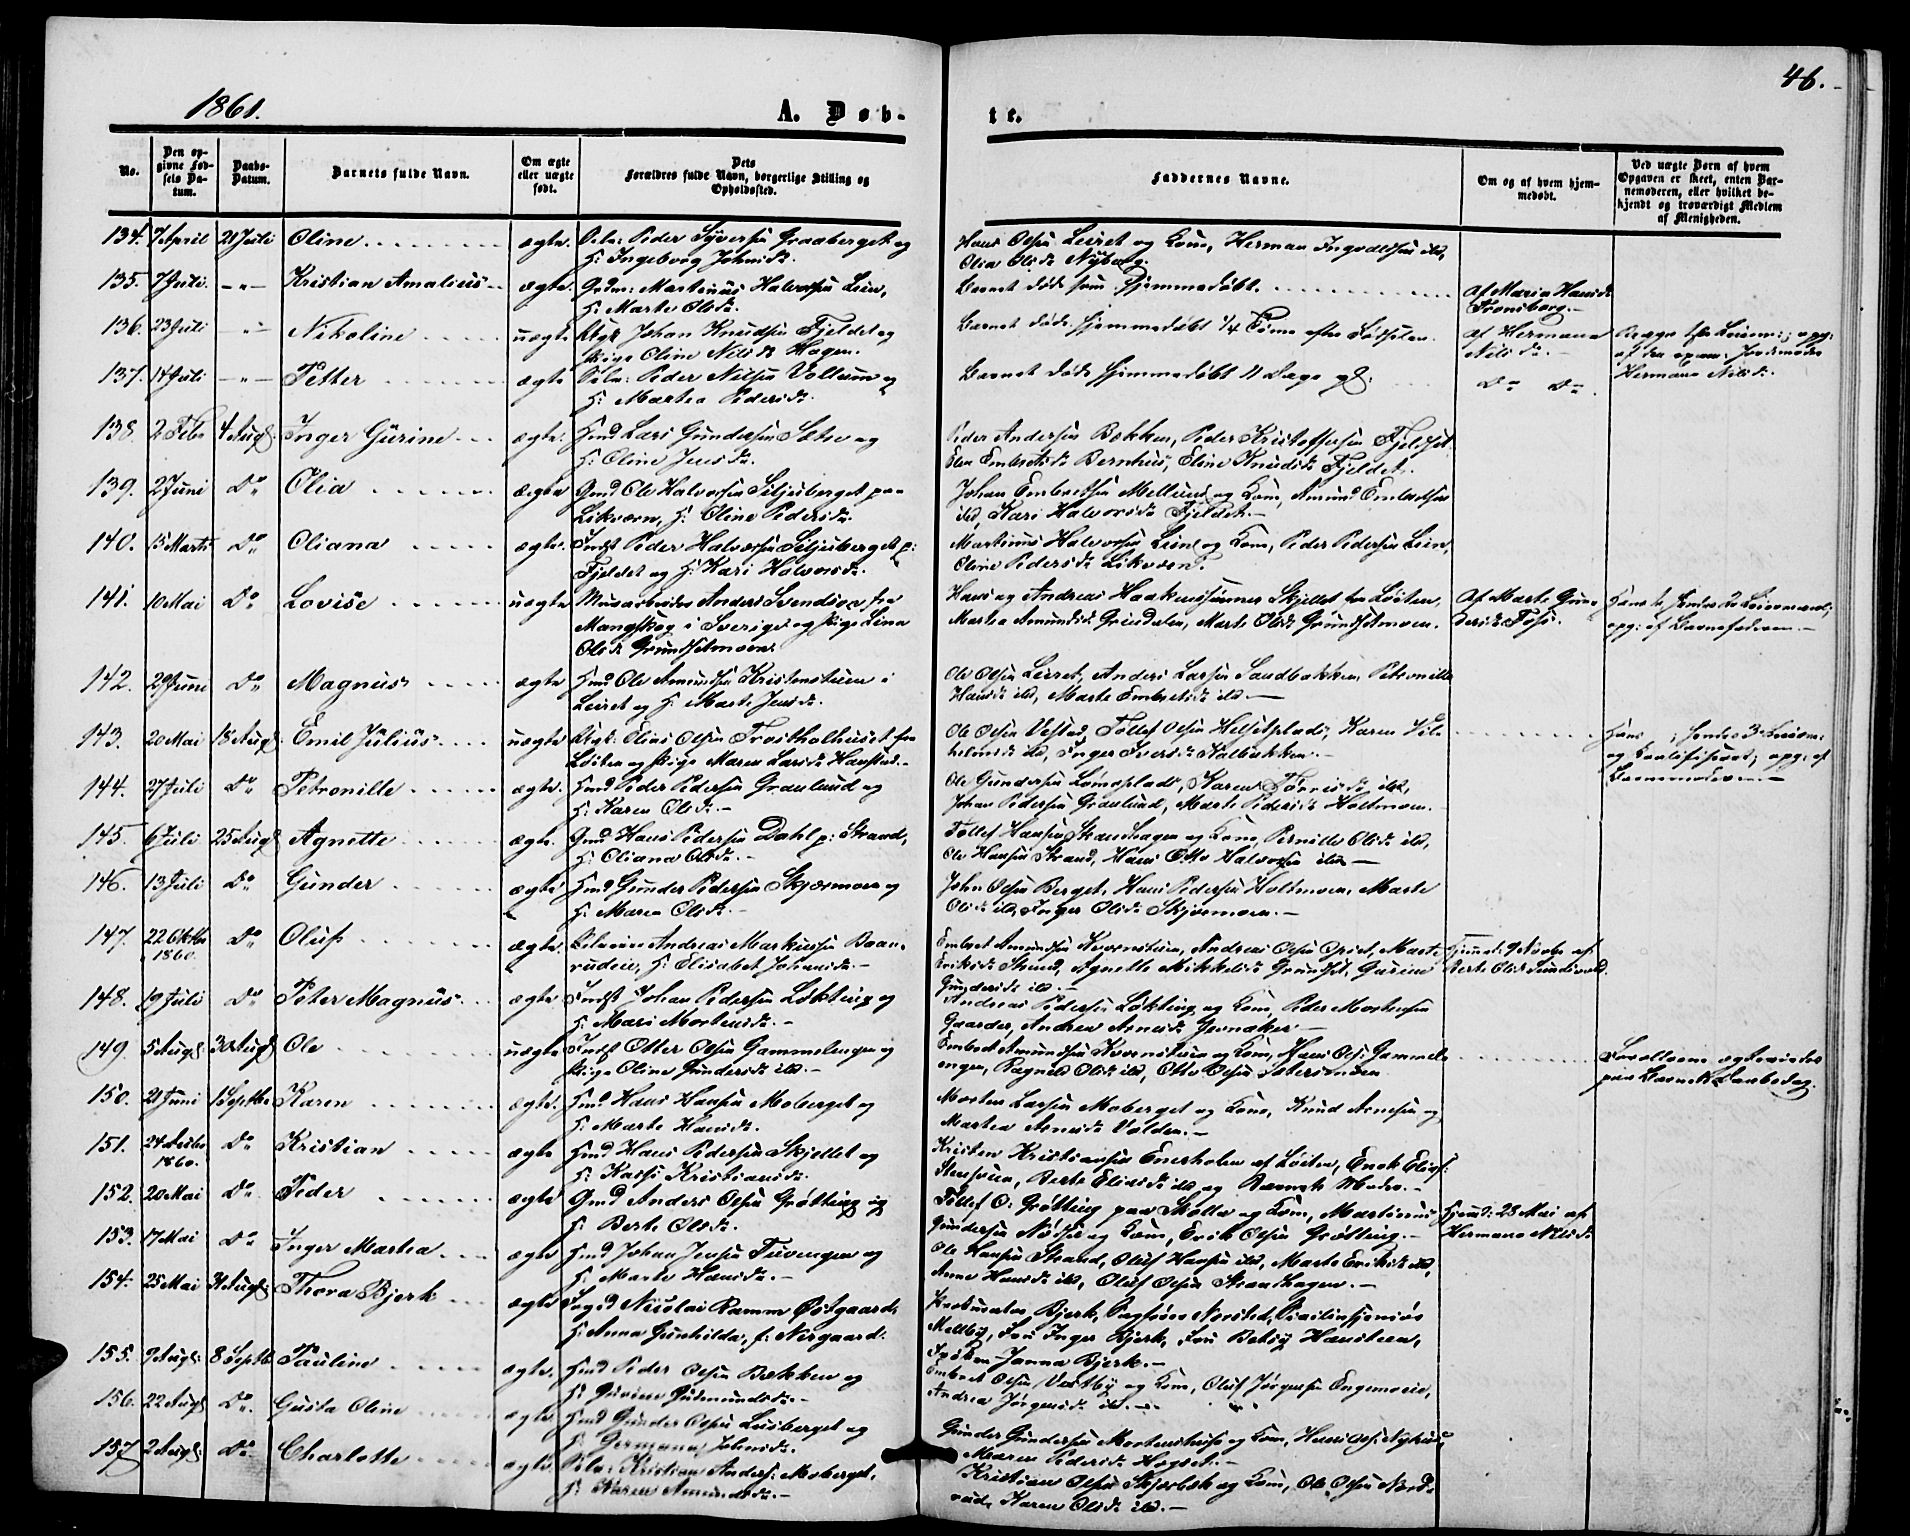 1861.
A. Døb-
te.
46.
No.
Den op-
givne Fød-
sels Da-
tum.
Daabs-
Datum.
Barnets fulde Navn.
Om ægte
eller uægte
født.
Dets
Forældres fulde Navn, borgerlige Stilling og
Opholdssted.
Faddernes Navne.
Om og af hvem hjem-
medøbt.
Ved uægte Børn af hvem
Opgaven er skeet, enten Bar-
nemoderen, eller hvilket be-
kjendt og troværdigt Medlem
af Menigheden.
134. 7 April 21 Juli Oline ægte. Peder Syversen Graaberget og
H: Ingeborg Johnsd.
Hans Olsen Leiret og Kone, Herman Ingvaldsen ibd,
Olia Olsd. Nyberg.
135. 7 Juli. -"- Kristian Amalius ægte. Martinus Halvorsen Lien,
H: Marte Olsd.
Barnet døde som hjemmedøbt.
Af Maria Hansd.
Tronsberg.-
136. 23 Juli -"- Nikoline uægte Ungk. Johan Knudsen Fjeldet og
Pige Oline Nilsd. Hagen.
Barnet døde hjemmedøbt 1/4 Time efter Fødselen.
af Hermana
Nilsd.-
Hermana Nilsd.
137. 14 Juli -"- Petter ægte Peder Nilsen Vollum og
H: Martea Pedersd.
Barnet døde hjemmedøbt 11 Dage gl.
Do Do
138. 2 Feb. 4 Aug. Inger Gurine ægte. Hmd Lars Gundersen Sætre og
H: Oline Jensd.
Peder Andersen Bækken, Peder Kristoffersen Fjeldset
Elen Embretsd. Bernhus, Eline Knudsd. Fjeldet.
139. 2 Juni Do Olia ægte Gmd Ole Halvorsen Siljuberget paa
Likværn, H: Oline Pedersd.
Johan Embretsen Mellum og Kone, Amund Embretsen
ibd, Kari Halvorsd. Fjeldet.-
140. 15 Marts Do Oliana ægte. Indst Peder Halvorsen Siljuberget p:
Fjeldet og H: Kari Halvorsd.
Martinus Halvorsen Lien og Kone, Peder Pedersen Lien,
Oline Pedersd. Likværn.
141. 10 Mai Do Lovise uægte Anders Svendsen fra
Mangskog i Sverige og Pige Lina
Olsd. Grundsetmoen.
Hans og Andreas Haakenssønner Skjellet fra Løiten,
Martea Amundsd. Grindalen, Marte Olsd. Grundsetmoen.
Af Marte Gun-
dersd. Foss.
opg: af Barnefaderen.-
142. 29 Juni Do Magnus ægte Hmd Ole Amundsen Kristenstuen i
Leiret og H: Marte Jensd.
Ole Olsen Leiret, Anders Larsen Sandbakken, Petronille
Hansd. ibd, Marte Embretsd. ibd.-
143. 20 Mai 18 Aug. Emil Julius uægte Ungk: Elias Olsen Trostholhuset fra
Løiten og Pige Maren Larsd. Hanstad.-
Ole Olsen Vestad, Tollef Olsen Helsetplads, Karen Vil-
helmsd. ibd, Inger Iversd. Kalbakken.-
opg: af
Barnemoderen.-
144. 27 Juli Do Petronille ægte. Hmd Peder Pedersen Grønlund og
H: Karen Olsd.-
Ole Gundersen Lømoplads, Karen Tønnesd. ibd,
Johan Pedersen Grønlund, Marte Pedersd. Holtmoen.
145. 6 Juli 25 Aug Agnette ægte. Gmd Hans Pedersen Dahl p: Strand,
H: Oliana Olsd.-
Tollef Hansen Skandhagen og Kone, Pernille Olsd. ibd,
Ole Hansen Strand, Hans Otto Halvorsen ibd.-
146. 13 Juli Do Gunder ægte Hmd Gunder Pedersen Skjæromoen og
H: Maren Olsd.-
John Olsen Berget, Hans Pedersen Holtmoen, Marte
Olsd. ibd, Inger Olsd. Skjæromoen.-
147. 22 Oktbr
1860. Do Oluf ægte. Andreas Markussen Baan-
rudeie, H: Elisabet Johansd.-
Embret Amundsen Kvernstuen, Andreas Olsen Opset, Marte
Eriksd. Strand, Agnette Mikkelsd. Grundset, Gurine
Gundersd. ibd.-
Hjemd: 9 Novbr af
Berte Olsd. Sundmoeld.
148. 19 Juli Do Peter Magnus ægte Indst Johan Pedersen Løkting og
H: Mari Mortensd.-
Andreas Pedersen Løkting og Kone, Peder Mortensen
Gaarder, Andrea Arnesd. Jernaker-
149. 5 Aug. 30 Aug Ole uægte Indst Otter Olsen Gammelengen og
Pige Oline Gundersd. ibd.-
Embret Amundsen Kvernstuen og Kone, Hans Ols: Gammel-
engen, Ragnild Olsd. ibd, Otto Olsen Sætersmoen
Forældrene ægteviedes
paa Barnets Daabsdag.
150. 21 Juni 1 Septbr Karen ægte. Hmd Hans Hansen Moberget og
H: Marte Hansd.
Morten Larsen Moberget og Kone, Knud Arnesen og
Martea Arnesd. Volden.-
151. 24 Decbr
1860. Do Kristian ægte Hmd Hans Pedersen Skjellet og
H: Kaisi Kristiansd.
Kristen Kristiansen Enerholen af Løiten, Enok Elias:
Stensen, Berte Eliasd. ibd og Barnets Moder.-
152. 20 Mai Do Peder ægte Gmd Anders Olsen Grøtting og
H: Berte Olsd.
Tollef O: Grøtting paa Skolla og Kone, Martinus
Gundersen Nødset og Kone, Erik Olsen Grøtting.-
Hjemd: 28 Mai af
Hermana Nilsd.
153. 17 Mai Do Inger Martea ægte Hmd Johan Jensen Tuvengen og
H: Marte Hansd.-
Ole Hansen Strand, Oluf Hansen ibd, Marte Eriksd. ibd,
Anne Hansd. ibd, Oluf Olsen Strandhagen.-
154. 25 Mai 31 Aug: Thora Bjerk ægte Nicolai Ramm Østgaard,
H: Anna Gunhilda, f: Nergaard.
Prokurator Bjerk, Sagfører Norsted, Premierløitn.
Mellby, Fru Inger Bjerk, Fru Betsy Hansteen,
Frøken Janna Bjerk.-
155. 9 Aug: 8 Septb Pauline ægte. Hmd Peder Olsen Bækken og
H: Gurine Gudmundsd.-
Embret Olsen Vestby og Kone, Oluf Jørgensen Engemoeie,
Andrea Jørgensd. ibd.-
156. 22 Aug Do Gusta Oline ægte Hmd Gunder Olsen Lusberget og
H: Germana Johnsd.
Gunder Gundersen Mortenstuse og Kone, Hans Ols: Nyhuus,
Maren Pedersd. Hagset.-
157. 2 Aug: Do Charlotte ægte. Kristian Anders: Moberget,
H: Karen Amundsd.-
Kristian Olsen Skjærbæk og Kone, Ole Olsen Nord-
rud, Karen Olsd. ibd.-